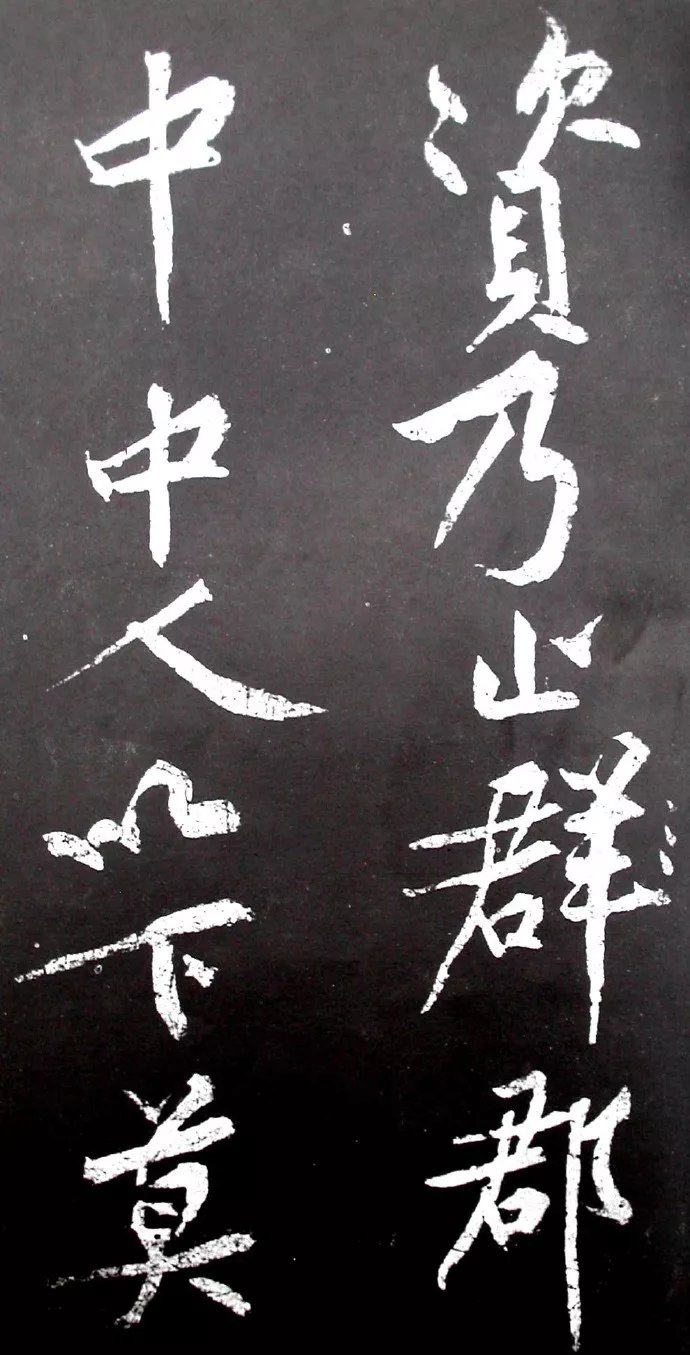 資乃止群郡
中中人以下莫